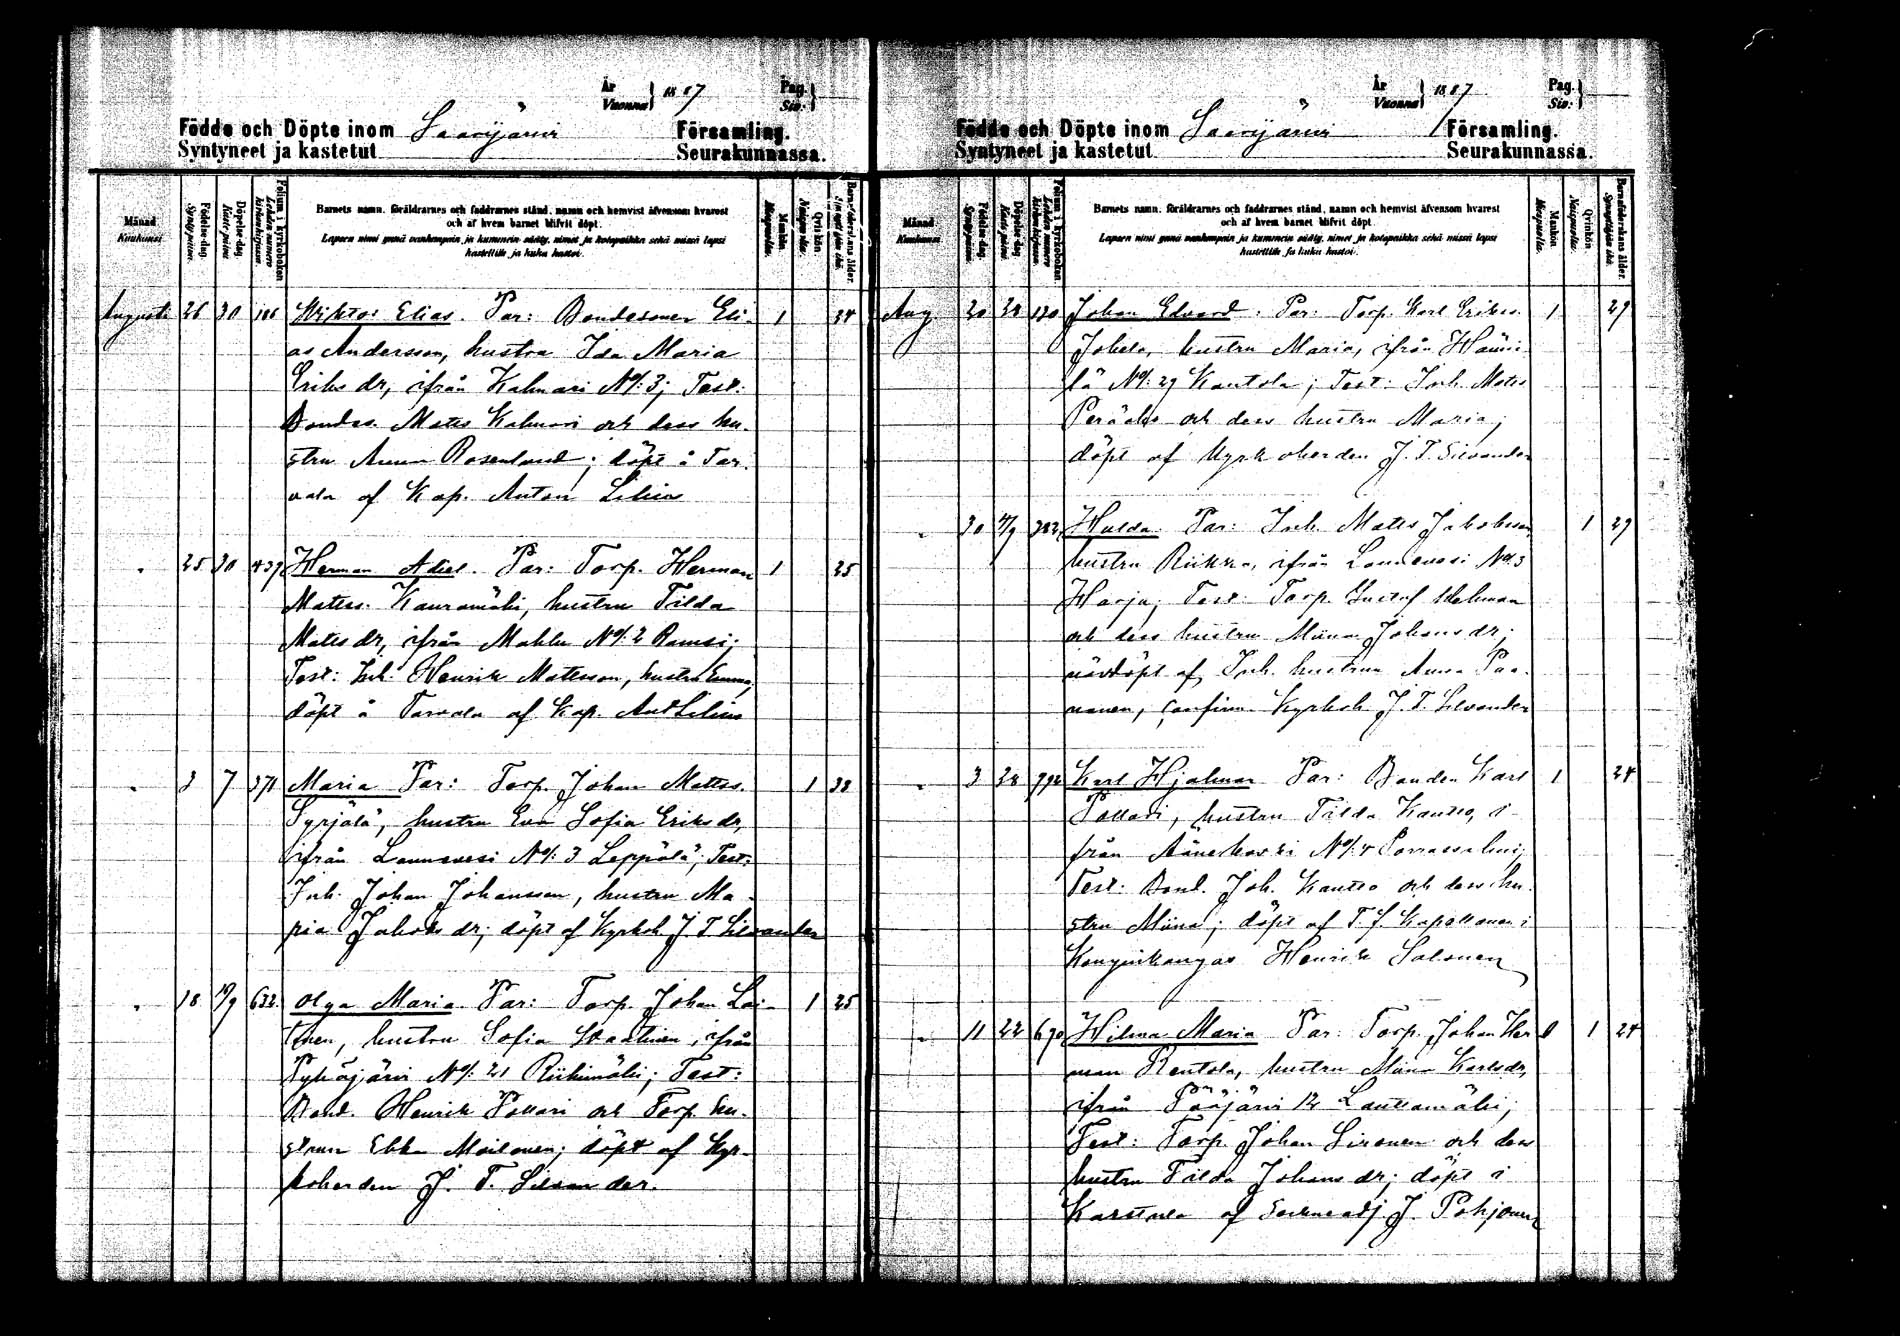 År
Vuonna } 1887
Pag.
Siv. }
Födde och Döpte inom Saarijärvi Församling.
Syntyneet ja kastetut Seurakunnassa.
Månad
Kuukausi
Födelse-dag.
Syntymäpäivä.
Döpelse-dag.
Kaste-päivä
Folium i kyrkoboken
Lehden numero kirkonkirjassa.
Barnets namn, föräldrarnes och faddrarnes stånd, namn och hemvist äfvensom hvarest
och af hvem barnet blifvit döpt.
Lapsen nimi ynnä vanhempain ja kummein sääty, nimet ja kotopaikka sekä missä lapsi
kastettiin ja kuka kastoi.
Mankön.
Miespuolia.
Qvinkön
Naispuolia.
Barnaföderskans ålder.
Synnyttäjän ikä.
Augusti 26 30 106 Wiktor Elias. Par: Bondesonen Eli- 1 34
as Andersson, hustru Ida Maria
Eriks dr, ifrån Kalmari No/: 3; Test:
Bondes. Matts Kalmari och dess hu-
stru Anna Rosenlund; döpt å Tar-
vala af Kap. Anton Lilius
" 25 30 439 Herman Adiel. Par: Torp. Herman 1 25
Matts. Kauramäki, hustru Tilda
Matts dr, ifrån Mahlu No/: 2 Ramsi;
Test: Inh. Henrik Matsson, hustru Emma;
döpt å Tarvala af Kap. Ant Lilius
" 3 7 371 Maria Par: Torp. Johan Matts. 1 38
Syrjälä, hustru Eva Sofia Eriks dr,
ifrån Lannevesi No/: 3 Leppälä; Test:
Inh. Johan Johansson, hustru Ma-
ria Jakobs dr; döpt af Kyrkoh. J. T. Silvander
" 18 19/9 632 Olga Maria Par: Torp. Johan Lai- 1 25
tinen, hustru Sofia, ifrån
Pyhäjärvi No/: 21 Riihimäki; Test:
Bond. Henrik Pollari och Torp. hu-
strun Ebba Moilanen; döpt af Kyr-
koherden J. T. Silvander.
År
Vuonna } 1887
Pag.
Siv. }
Födde och Döpte inom Saarijärvi Församling.
Syntyneet ja kastetut Seurakunnassa.
Månad
Kuukausi
Födelse-dag.
Syntymäpäivä.
Döpelse-dag.
Kaste-päivä
Folium i kyrkoboken
Lehden numero kirkonkirjassa.
Barnets namn, föräldrarnes och faddrarnes stånd, namn och hemvist äfvensom hvarest
och af hvem barnet blifvit döpt.
Lapsen nimi ynnä vanhempain ja kummein sääty, nimet ja kotopaikka sekä missä lapsi
kastettiin ja kuka kastoi.
Mankön
Miespuolia.
Qvinkön
Naispuolia.
Barnaföderskans ålder.
Synnyttäjän ikä.
Aug. 20 28 130 Johan Edvard. Par: Torp. Karl Erikss. 1 29
Jokela, hustru Maria, ifrån Hänni-
lä No/: 29 Kantola; Test: Inh. Matts
och dess hustru Maria;
döpt af Kyrkoherden J. T. Silvander
" 30 4/9 382 Hulda. Par: Inh. Matts Jakobsson, 1 29
hustru Riikka, ifrån Lannevesi No/: 3
Harju; Test: Torp. Gustaf
och dess hustru Miina Johans dr;
nöddöpt af Inh. hustrun Anna Paa-
nanen, confirm. Kyrkoh. J. T. Silvander
" 3 28 792 Karl Hjalmar Par: Bonden Karl 1 24
Pollari, hustru Tilda Kautto, i-
från Äänekoski No/: 4
Test: Bond. Joh. Kautto och dess hu-
stru Miina; döpt af T. f. Kapellanen i
Konginkangas Henrik Salonen
" 11 22 670 Hilma Maria Par: Torp. Johan Her- 1 24
man Rentola, hustru Miina Karlsdr,
ifrån Pääjärvi 12 Lauttamäki;
Test: Torp. Johan Sironen och dess
hustru Tilda Johans dr; döpt i
Karstula af Sockneadj. J. Pohjonen